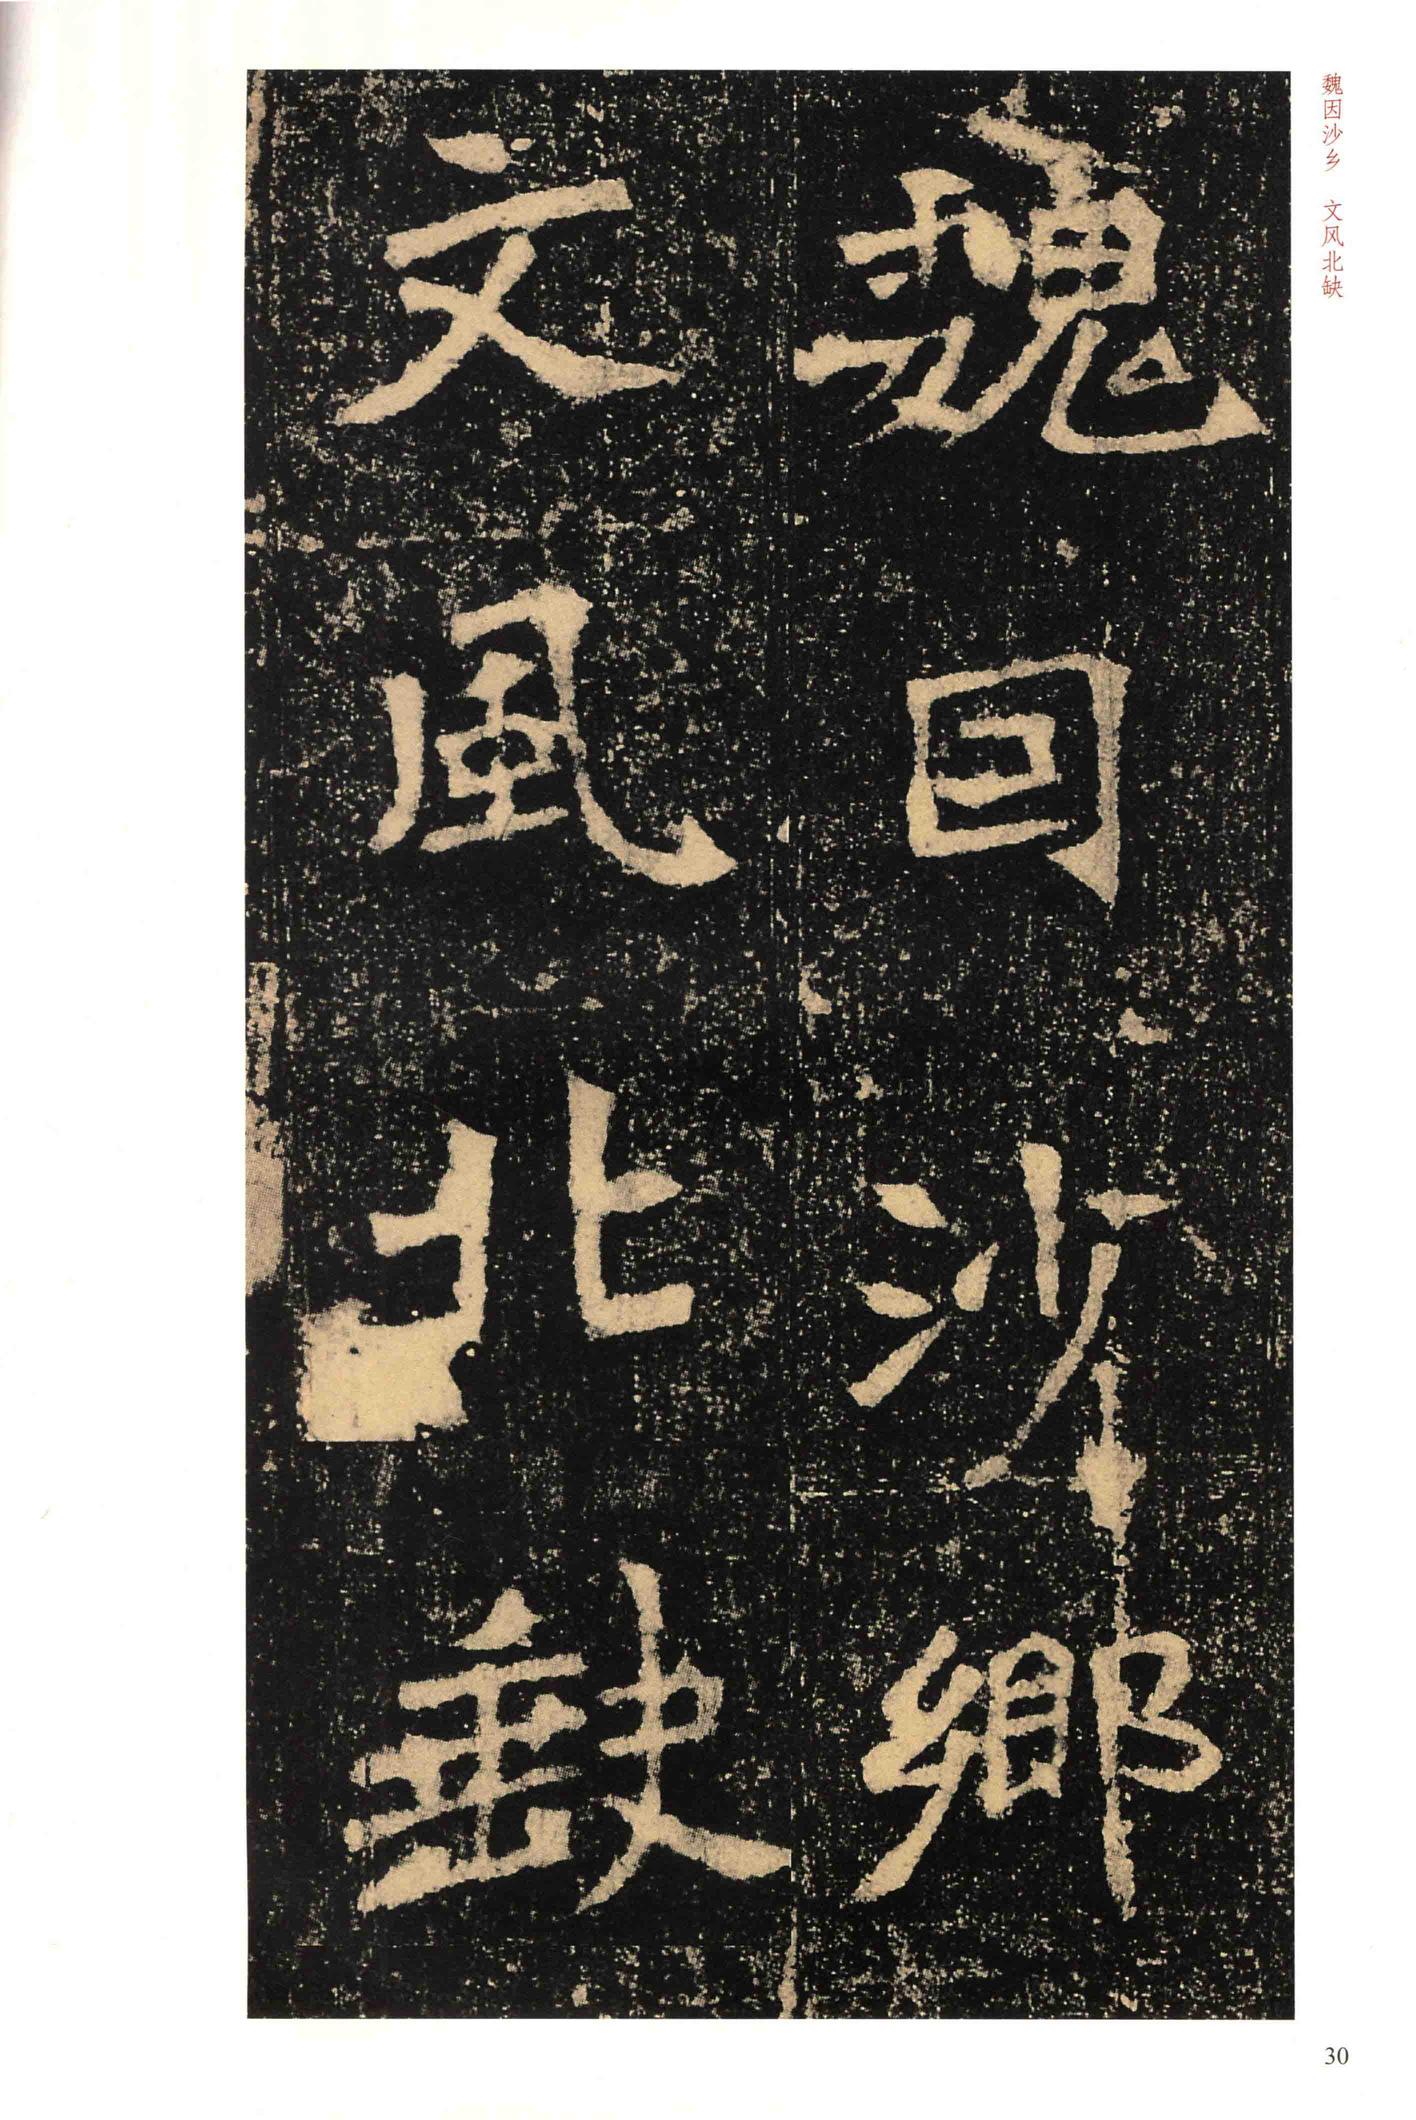 魏因沙乡　文风北缺
魏囙沙鄉
文風北缺
30